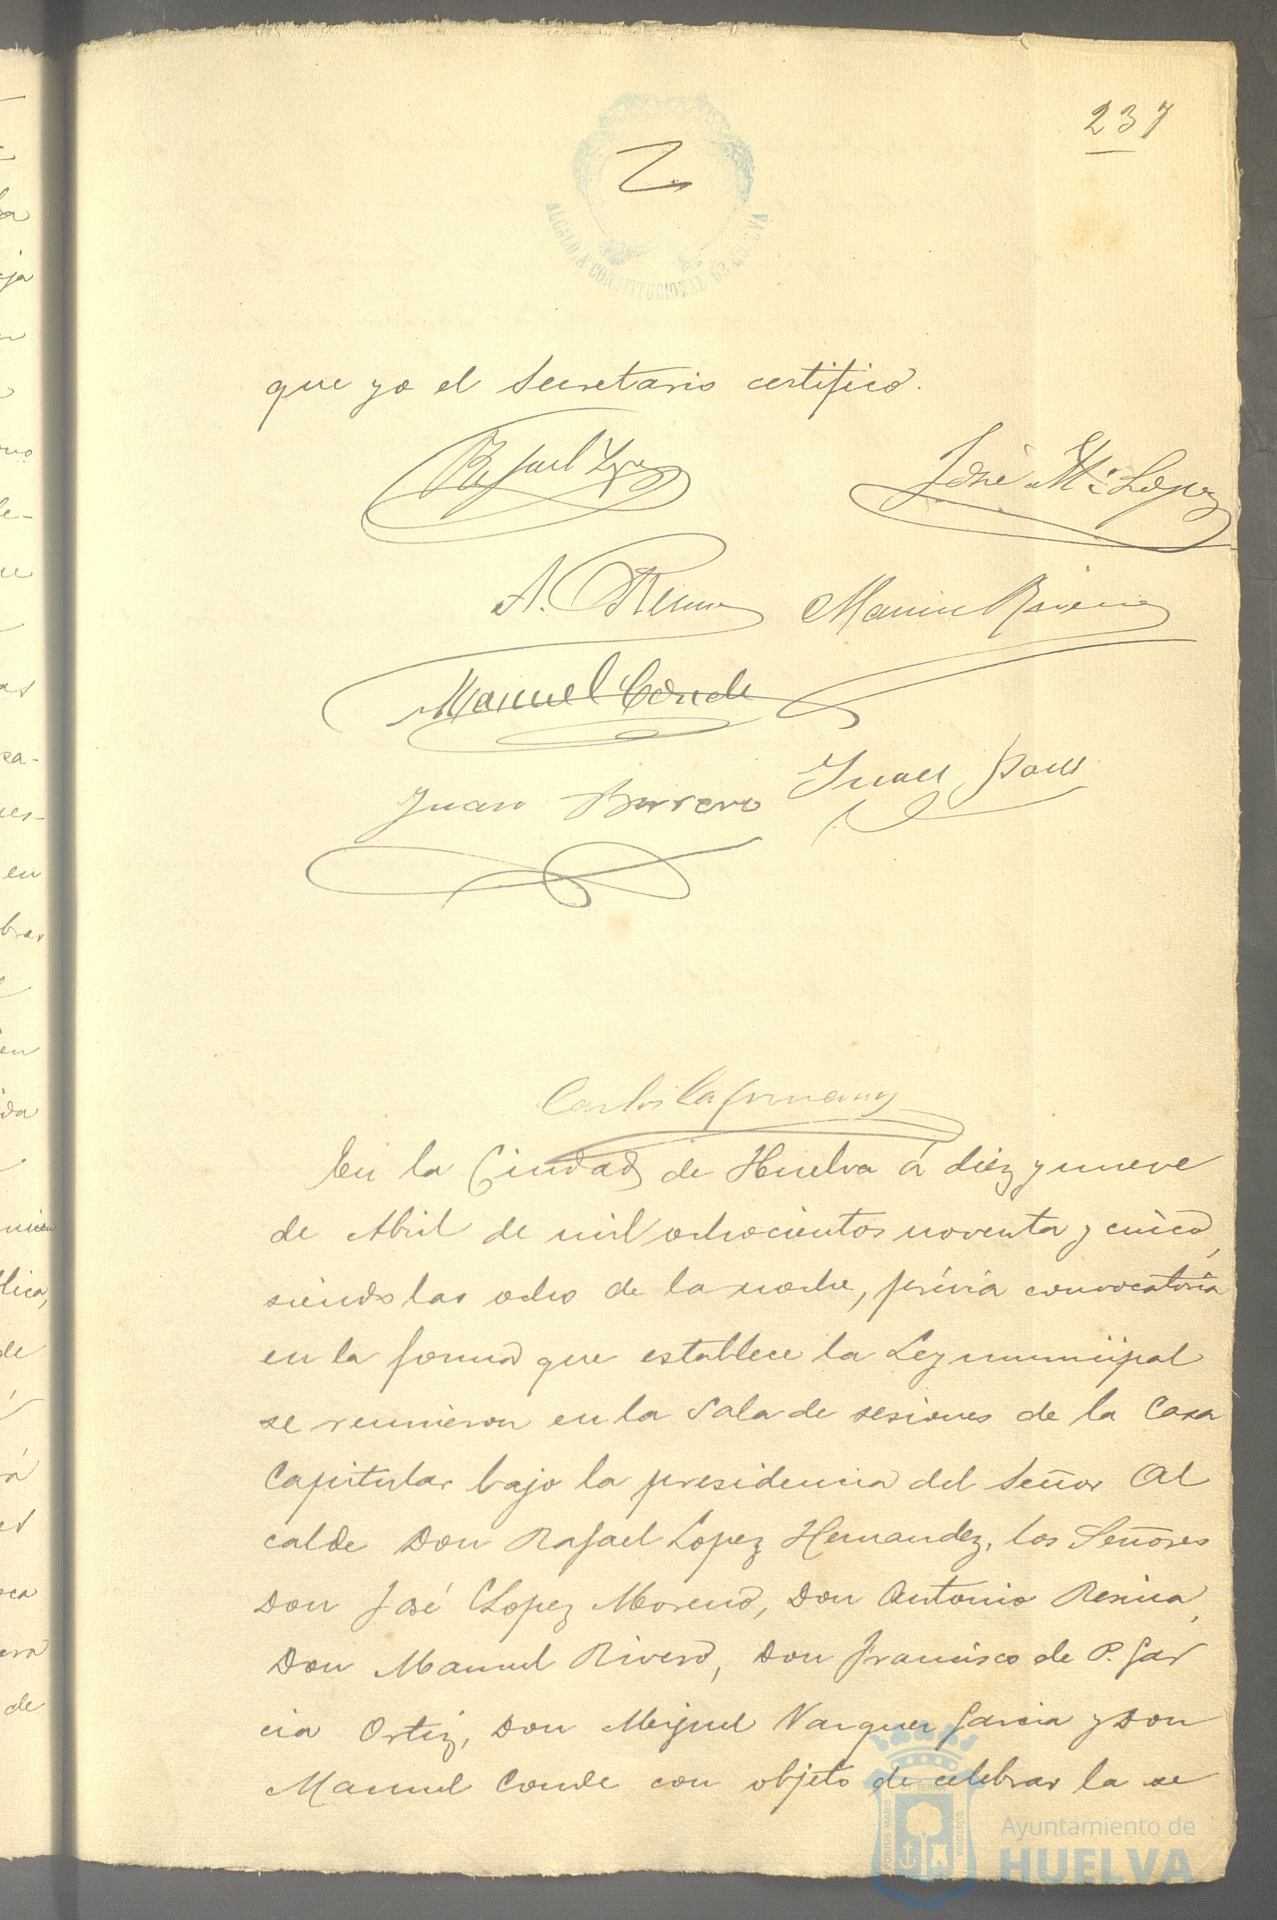 237
ALCALDIA CONSTITUCIONAL DE HUELVA
que yo el Secretario certifico.
Rafael Lopez
José Mª Lopez
A. Resina
Manuel Rivero
Manuel Conde
Juan Borrero
Juan
Carlos
En la Ciudad de Huelva á diez y nueve
de Abril de mil ochocientos noventa y cinco,
siendo las ocho de la noche, prévia convocatoria
en la forma que establece la Ley municipal
se reunieron en la Sala de sesiones de la Casa
Capitular bajo la presidencia del Señor Al
calde Don Rafael Lopez Hernandez, los Señores
Don José Lopez Moreno, Don Antonio Resina,
Don Manuel Rivero, Don Francisco de P. Gar
cia Ortiz, Don Miguel Vazquez Garcia y Don
Manuel Conde con objeto de celebrar la se
Ayuntamiento de
HUELVA